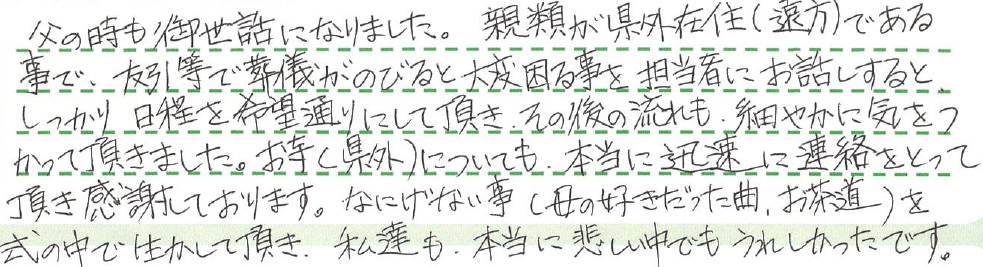 父の時も御世話になりました。親類が県外在住(遠方)である
事で、友引等で葬儀がのびると大変困る事を担当者にお話しすると、
しっかり日程を希望通りにして頂き、その後の流れも、細やかに気をつ
かって頂きました。お寺(県外)についても、本当に迅速に連絡をとって
頂き感謝しております。なにげない事(母の好きだった曲、お茶道)を
式の中で生かして頂き、私達も、本当に悲しい中でもうれしかったです。